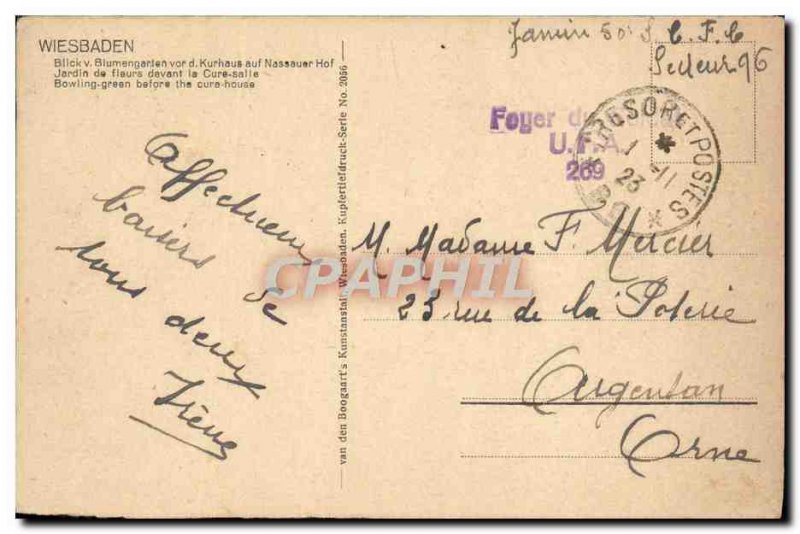 WIESBADEN
Blick v. Blumengarten vor d. Kurhaus auf Nassauer Hof
Jardin de fleurs devant la Cure-salle
Bowling-green before the cure-house
Janvin 50e S. C. F. C
Secteur 96
Foyer du
U.F.A.
269
TRESOR ET POSTES
1 -11
23
Affectueux
baisers de
tous deux
Irène
van den Boogaart's Kunstanstalt, Wiesbaden. Kupfertiefdruck-Serie No. 2056
M. Madame F. Mercier
23 rue de la Poterie
Argentan
Orne
CPARAMA